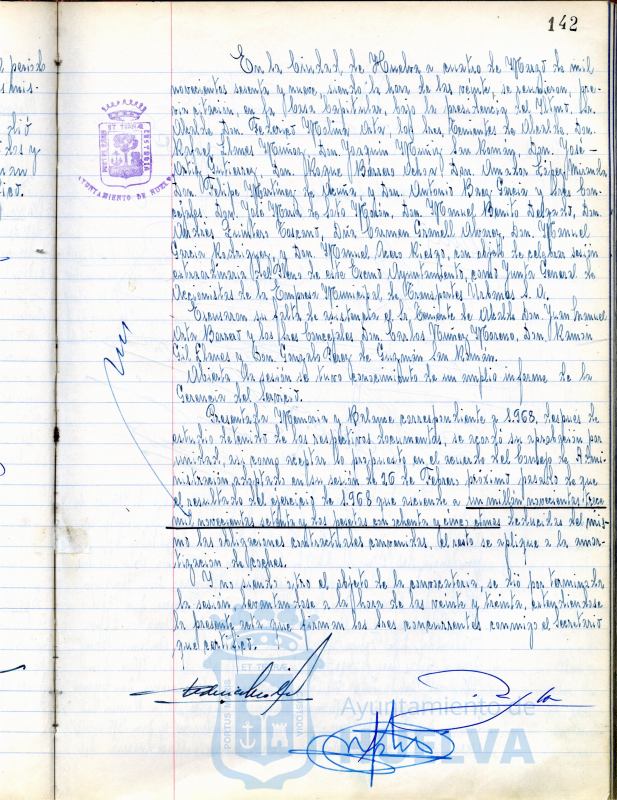 142
En la Ciudad de Huelva a cuatro de Marzo de mil
novecientos sesenta y nueve, siendo la hora de las veinte, se reunieron, pre-
via citación, en la Casa Capitular, bajo la presidencia del Iltmo. Sr.
Alcalde Don Federico Molina Orta, los Sres. Tenientes de Alcalde, Don
Rafael Llanes Muñoz, Don Joaquín Muñiz San Román, Don José-
Ortiz Gutierrez, Don Roque Barcia Ochoa, Don Amador López Miranda
Don Felipe Martínez de Acuña, y Don Antonio Baez García y Sres. Con-
cejales, Don José María de Soto Morón, Don Manuel Benito Delgado, Don
Andrés Quintero Toscano, Dña. Carmen Granell Alvarez, Don Manuel
García Rodríguez, y Don Manuel Acero Riesgo, con objeto de celebrar sesión
extraordinaria del Pleno de este Excmo. Ayuntamiento, como Junta General de
Accionistas de la Empresa Municipal de Transportes Urbanos S.A.
Excusaron su falta de asistencia el Sr. Teniente de Alcalde Don Juan Manuel
Orta Borrero y los Sres. Concejales Don Carlos Núñez Moreno, Don Ramón
Gil Llanes y Don Gonzalo Pérez de Guzmán San Román.
Abierta la sesión se tuvo conocimiento de un amplio informe de la
Gerencia del Servicio.
Presentada Memoria y Balance correspondiente a 1.968, después de
estudio detenido de los respectivos documentos, se acordó su aprobación por
unidad, así como aceptar la propuesta en el acuerdo del Consejo de Admi-
nistración adoptado en su sesión de 26 de Febrero próximo pasado de que
el resultado del ejercicio de 1968 que asciende a un millón novecientas trece
mil novecientas setenta y dos pesetas con ochenta y cinco ctmos. deducidas del mis-
mo las obligaciones contractuales convenidas, el resto se aplique a la amor-
tización de coches.
Y no siendo otro el objeto de la convocatoria, se dió por terminada
la sesión levantándose a la hora de las veinte y treinta, extendiéndose
la presente acta que firman los Sres. concurrentes conmigo el Secretario
que certifico.
ET TERRAE
PORTUS MARIS
CUSTODIA
AYUNTAMIENTO DE HUELVA
Ayuntamiento de
HUELVA